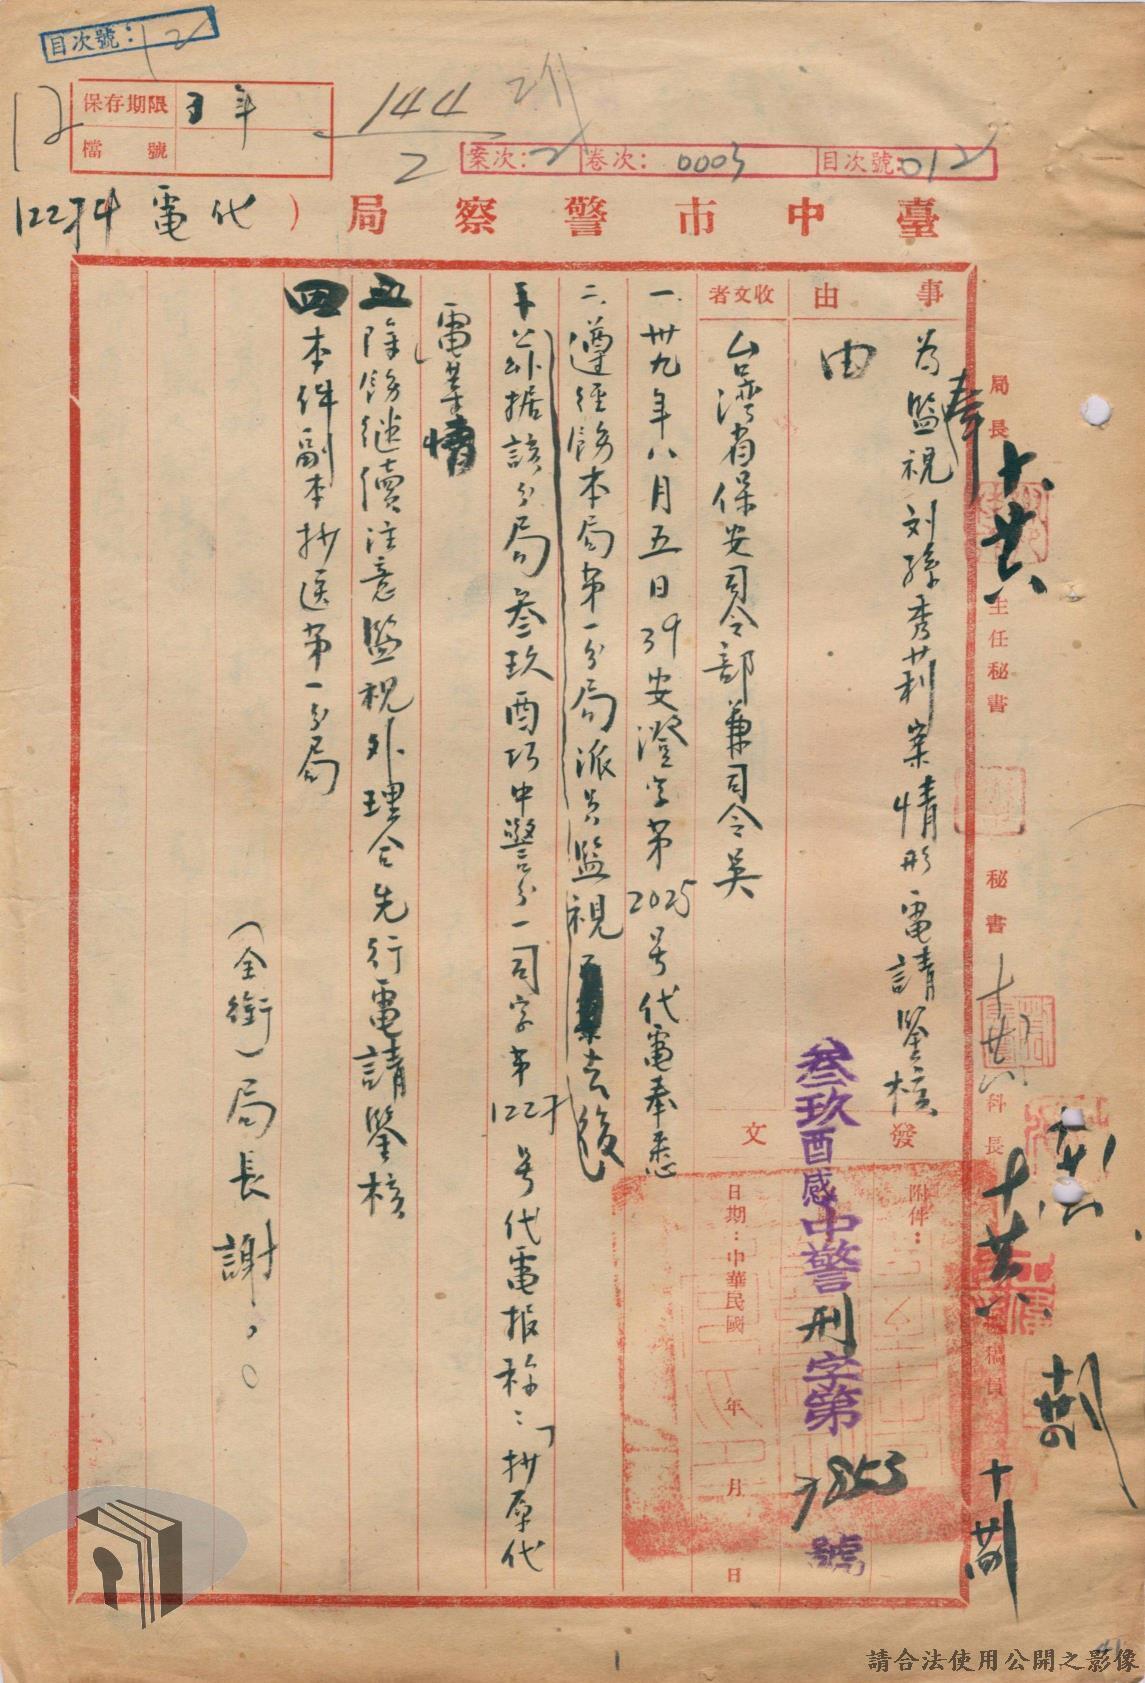 目次號：12
12
保存期限 五年
檔號
144
2
案次：2
卷次：0003
目次號：012
臺中市警察局（代電
事由
為監視刘孫秀莉案情形電請鑒核
由
收文者
台湾省保安司令部兼司令吴
發文
附件：
日期：中華民國 年 月 日
叁玖酉感中警刑字第7853號
一、卅九年八月五日39安澄字第2025号代電奉悉
二、遵經飭本局第一分局派員監視去後
兹据該分局叁玖酉巧中警分一司字第号代電报称：「抄原代
電業情
除飭继續注意監視外理合先行電請鑒核
四本件副本抄送第一分局
（全銜）局長謝
局長
主任秘書
秘書
科長
1
41
請合法使用公開之影像